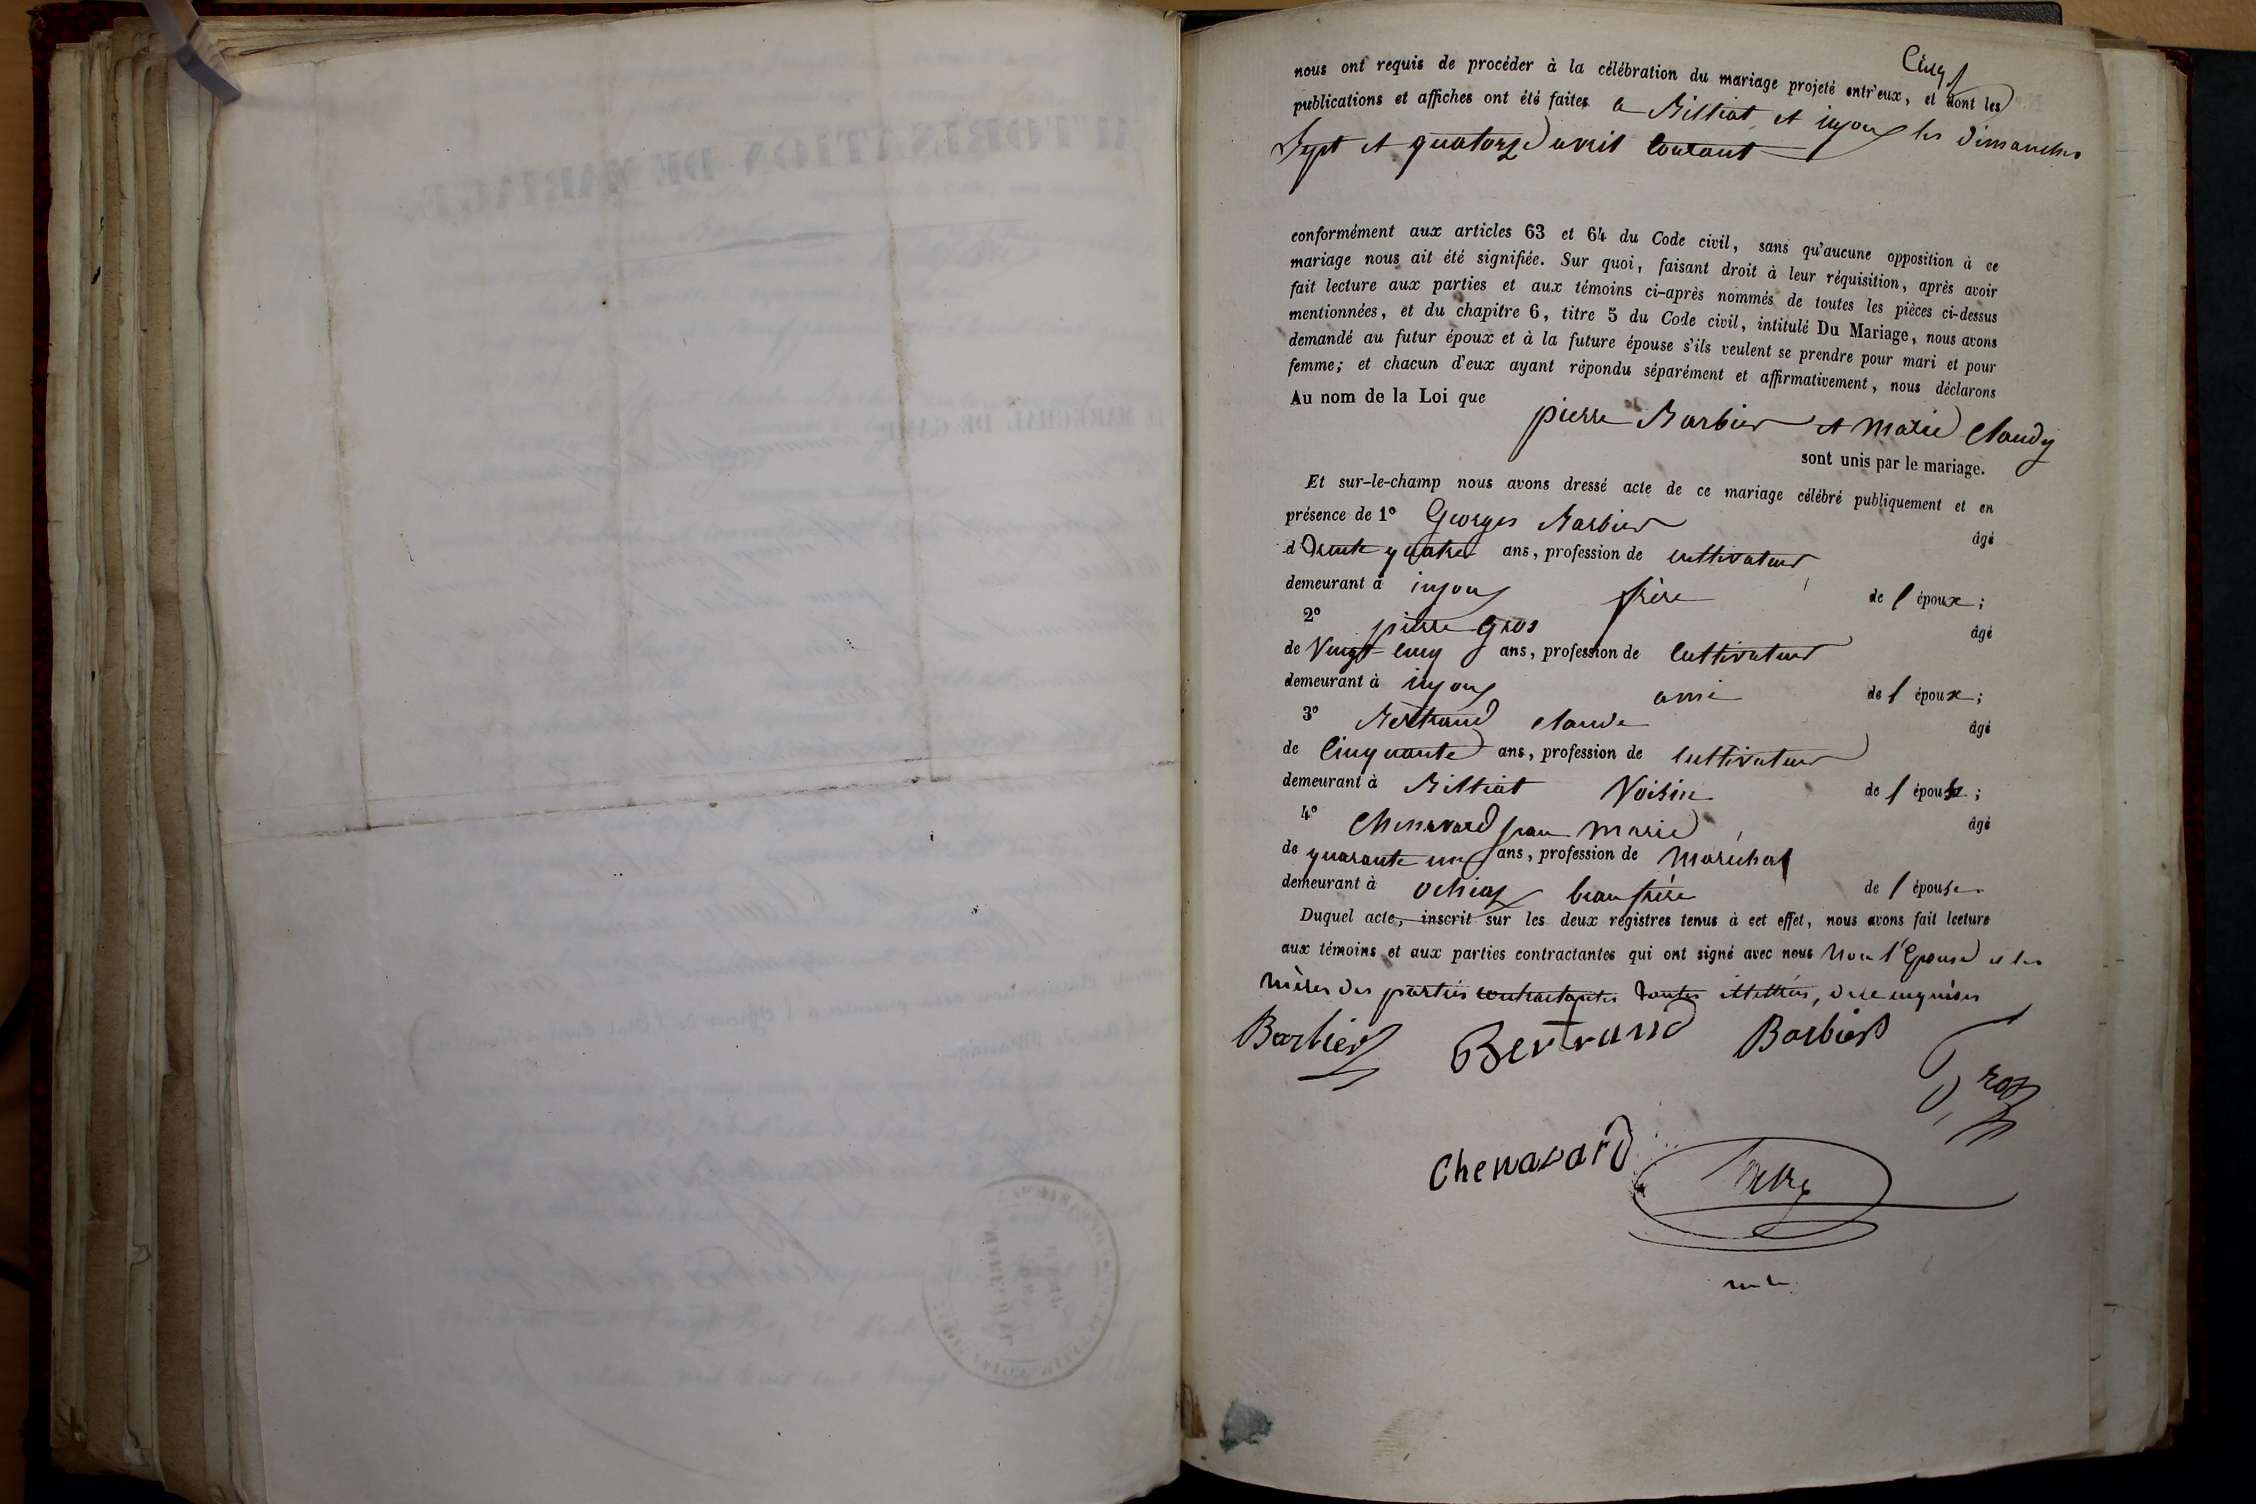 Cinq
nous ont requis de procéder à la célébration du mariage projeté entr'eux, et dont les
publications et affiches ont été faites a Billiat et injoux les dimanches
Sept et quatorze avril courant
conformément aux articles 63 et 64 du Code civil, sans qu'aucune opposition à ce
mariage nous ait été signifiée. Sur quoi, faisant droit à leur réquisition, après avoir
fait lecture aux parties et aux témoins ci-après nommés de toutes les pièces ci-dessus
mentionnées, et du chapitre 6, titre 5 du Code civil, intitulé Du Mariage, nous avons
demandé au futur époux et à la future épouse s'ils veulent se prendre pour mari et pour
femme; et chacun d'eux ayant répondu séparément et affirmativement, nous déclarons
Au nom de la Loi que
pierre Barbier et Marie Claudy
sont unis par le mariage.
Et sur-le-champ nous avons dressé acte de ce mariage célébré publiquement et en
présence de 1° Georges Barbier âgé
d Trente quatre ans, profession de cultivateur
demeurant à injoux frère de l époux;
2° pierre Gros âgé
de Vingt-cinq ans, profession de cultivateur
demeurant à injoux ami de l époux;
3° Bertrand claude âgé
de Cinquante ans, profession de cultivateur
demeurant à Billiat Voisin de l épouse;
4° Chenavard jean marie âgé
de quarante un ans, profession de Maréchal
demeurant à ochiaz beau frère de l épouse
Duquel acte, inscrit sur les deux registres tenus à cet effet, nous avons fait lecture
aux témoins et aux parties contractantes qui ont signé avec nous Non l'Epouse et les
mères des parties contractantes toutes illettrées, de ce enquises
Barbier Bertrand Barbier
Gros
Chenavard